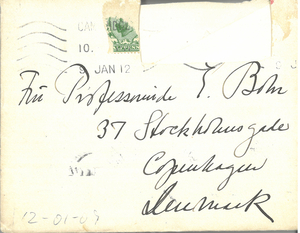 CAM
10.
9 JAN 12
Fru Professorinde E. Bohr
37 Stockholmsgade
Copenhagen
Denmark
12-01-09